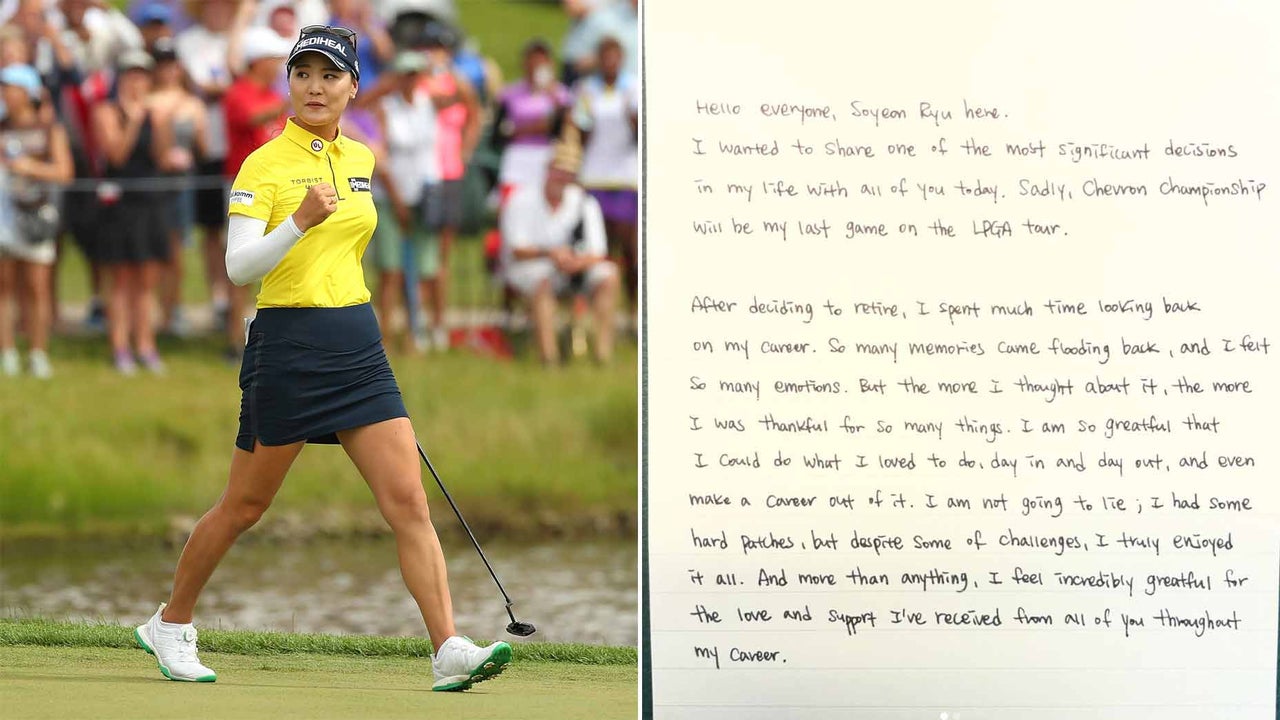 MEDIHEAL
TORBIST
Hello everyone, Soyeon Ryu here.
I wanted to share one of the most significant decisions
in my life with all of you today. Sadly, Chevron Championship
will be my last game on the LPGA tour.
After deciding to retire, I spent much time looking back
on my career. So many memories came flooding back, and I felt
so many emotions. But the more I thought about it, the more
I was thankful for so many things. I am so greatful that
I could do what I loved to do, day in and day out, and even
make a career out of it. I am not going to lie ; I had some
hard patches, but despite some of challenges, I truly enjoyed
it all. And more than anything, I feel incredibly greatful for
the love and support I've received from all of you throughout
my career.